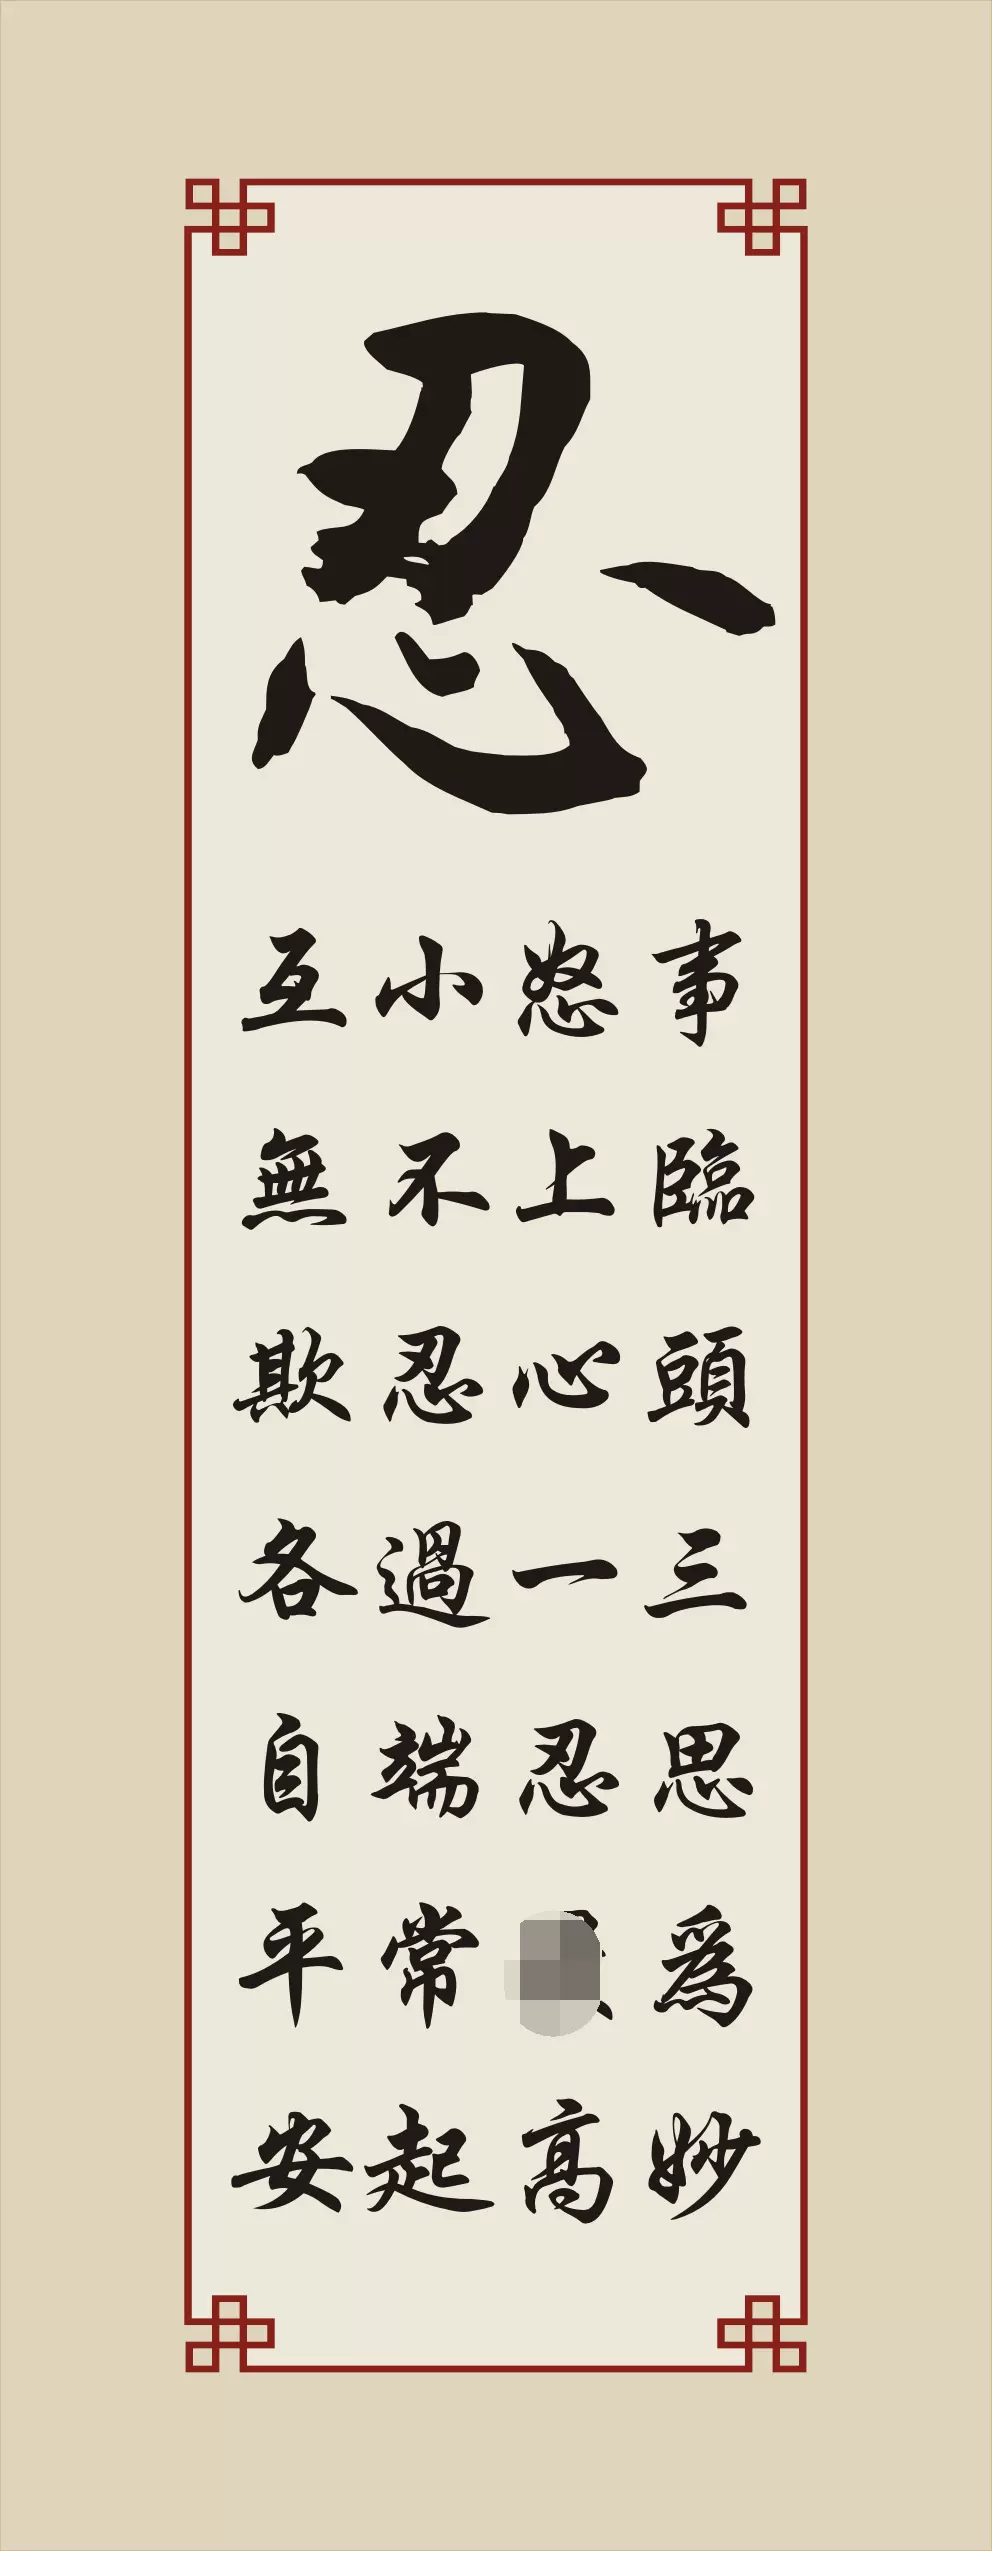 忍
事臨頭三思爲妙
怒上心一忍高
小不忍過端常起
互無欺各自平安